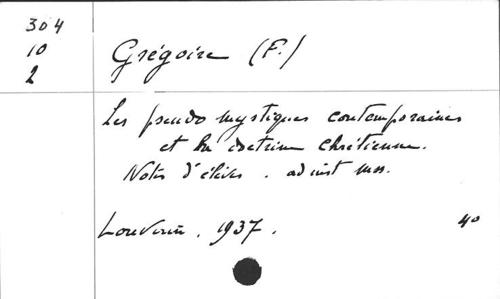 304
10
2
Grégoire (F.)
Les pseudo mystiques contemporaines
et la doctrine chrétienne.
Notes d'élèves. ad inst mss.
Louvain. 1937.
4o